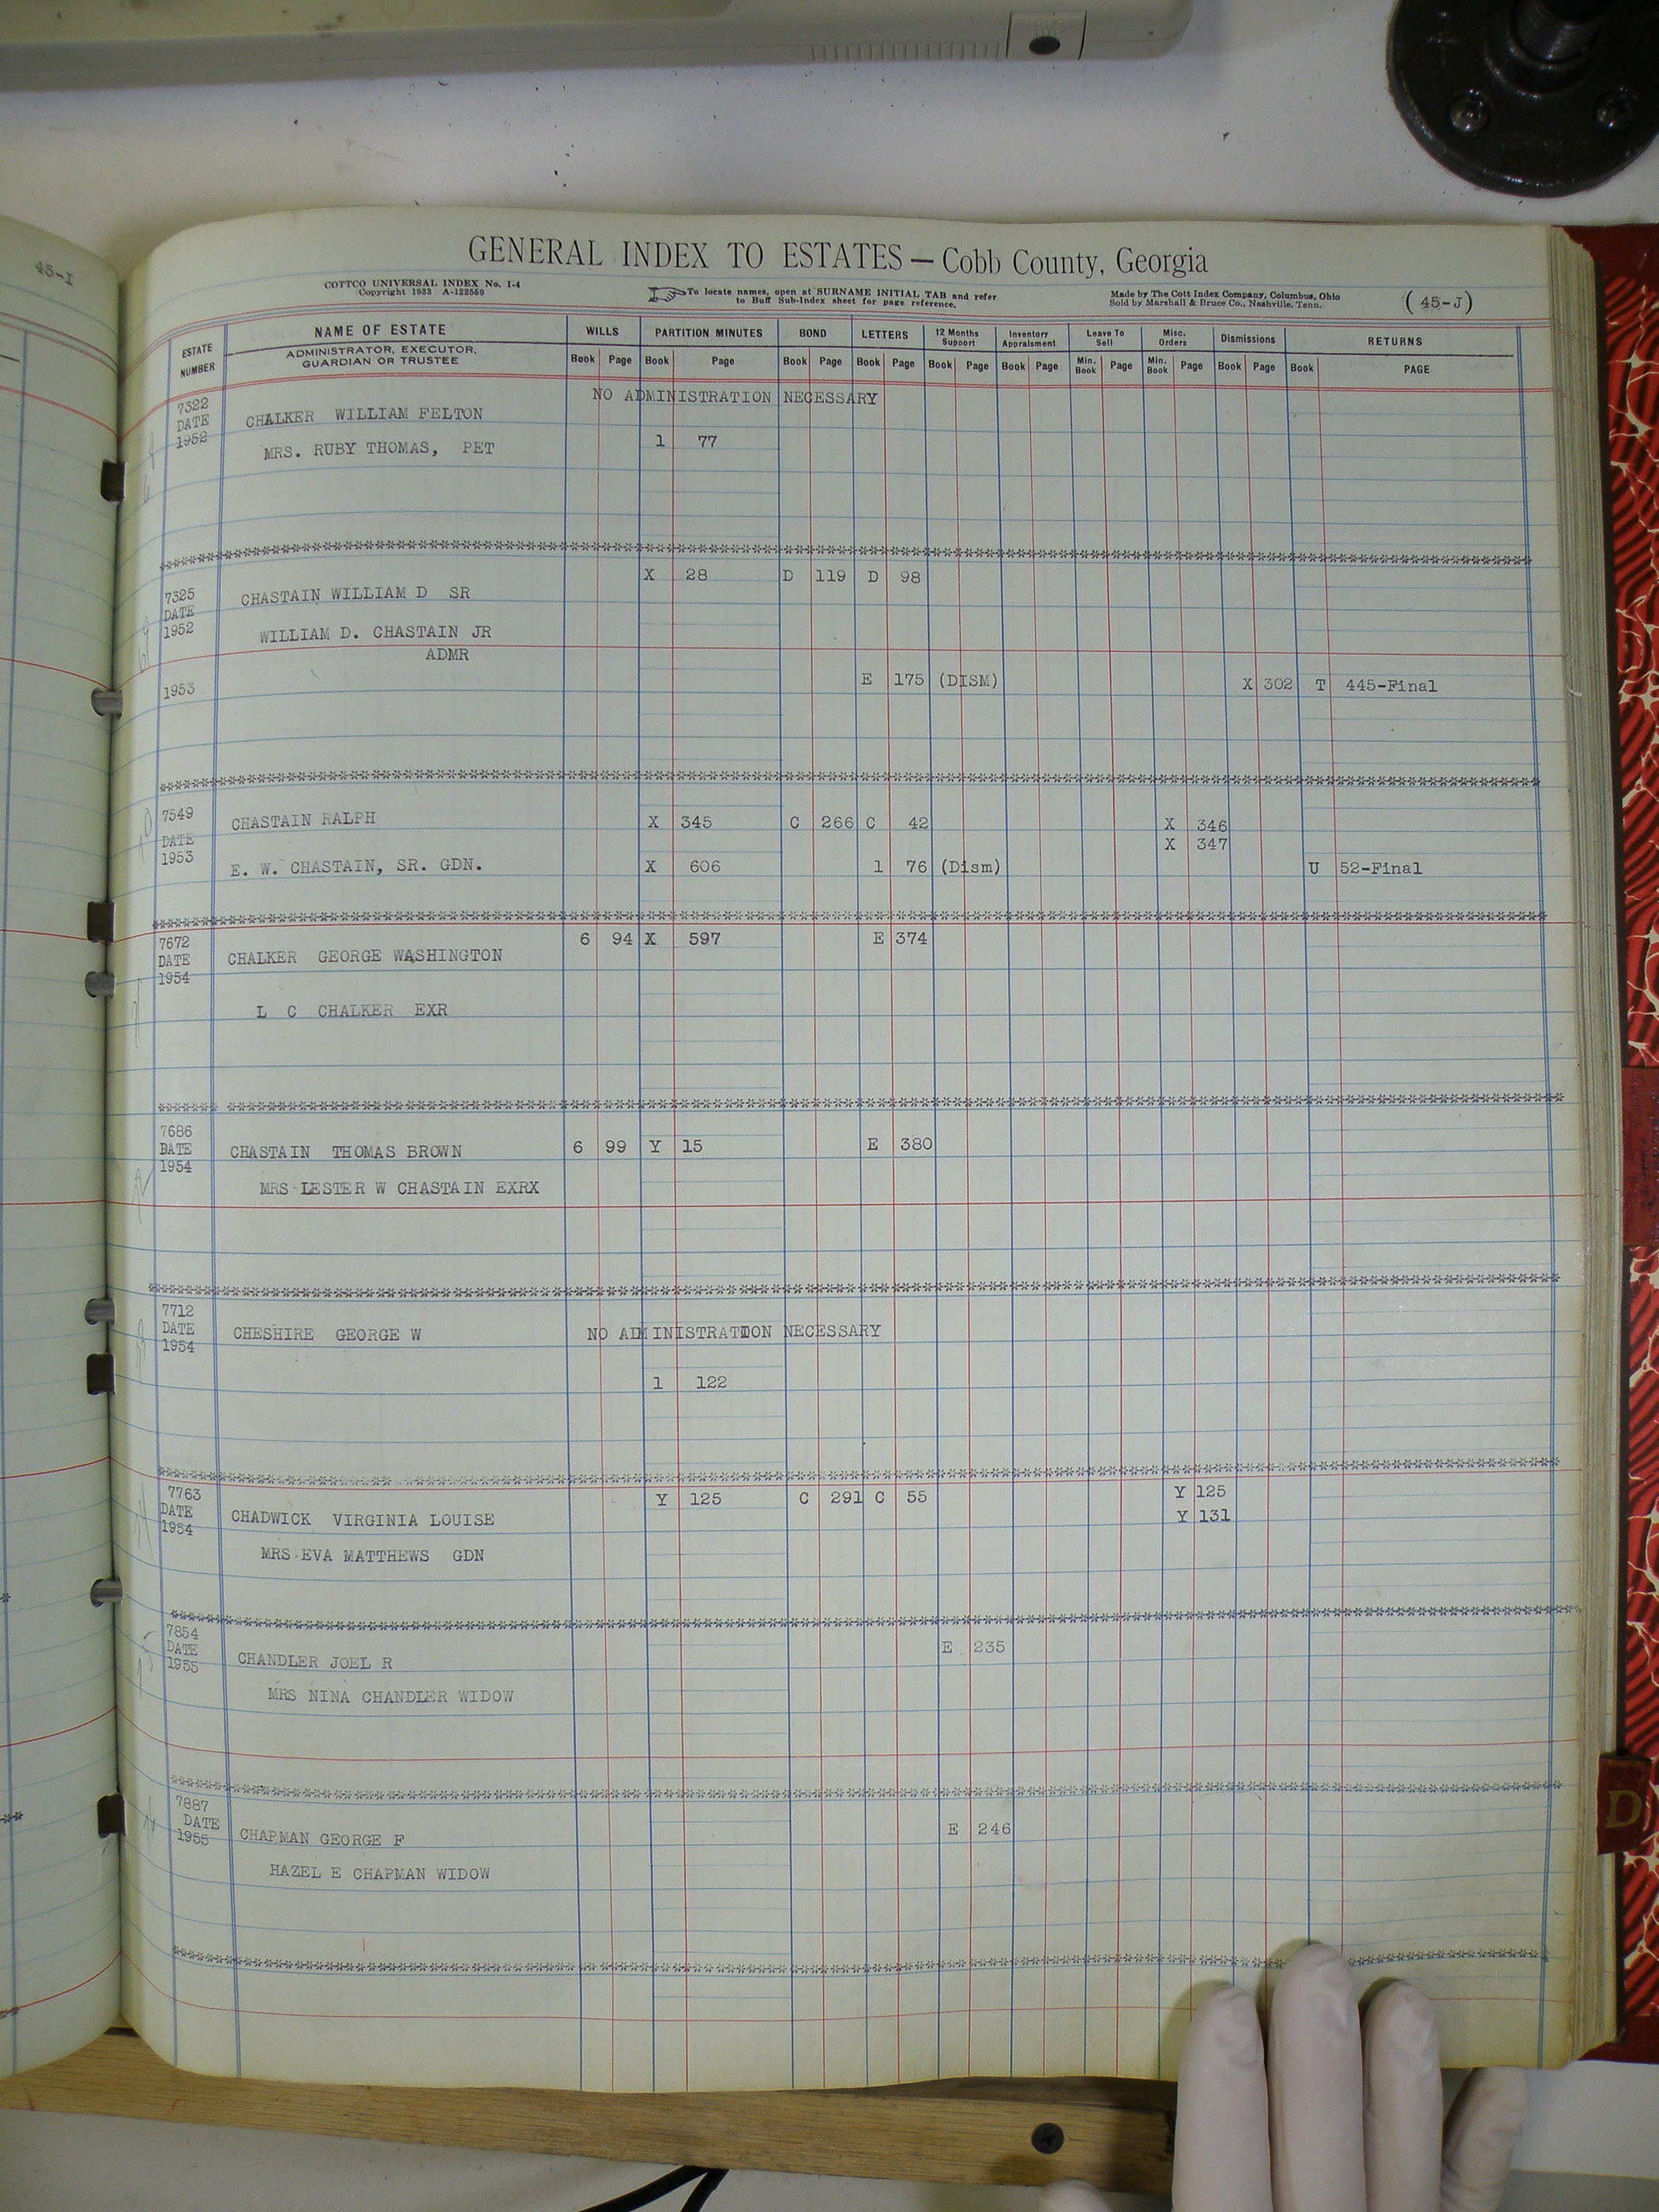 45-I
GENERAL INDEX TO ESTATES — Cobb County, Georgia
COTTCO UNIVERSAL INDEX No. I-4
Copyright 1933 A-122559
To locate names, open at SURNAME INITIAL TAB and refer
to Buff Sub-Index sheet for page reference.
Made by The Cott Index Company, Columbus, Ohio
Sold by Marshall & Bruce Co., Nashville, Tenn.
( 45-J)
ESTATE NUMBER
NAME OF ESTATE
ADMINISTRATOR, EXECUTOR,
GUARDIAN OR TRUSTEE
WILLS PARTITION MINUTES BOND LETTERS 12 Months Support Inventory Appraisment Leave To Sell Misc. Orders Dismissions RETURNS
Book Page Book Page Book Page Book Page Book Page Book Page Min. Book Page Min. Book Page Book Page Book PAGE
7322 NO ADMINISTRATION NECESSARY
DATE CHALKER WILLIAM FELTON
1952 MRS. RUBY THOMAS, PET 1 77
X 28 D 119 D 98
7325 CHASTAIN WILLIAM D SR
DATE
1952 WILLIAM D. CHASTAIN JR
ADMR
1953 E 175 (DISM) X 302 T 445-Final
7549 CHASTAIN RALPH X 345 C 266 C 42 X 346
DATE X 347
1953 E. W. CHASTAIN, SR. GDN. X 606 1 76 (Dism) U 52-Final
7672 6 94 X 597 E 374
DATE CHALKER GEORGE WASHINGTON
1954
L C CHALKER EXR
7686
DATE CHASTAIN THOMAS BROWN 6 99 Y 15 E 380
1954
MRS LESTER W CHASTAIN EXRX
7712
DATE CHESHIRE GEORGE W NO ADMINISTRATION NECESSARY
1954
1 122
7763 Y 125 C 291 C 55 Y 125
DATE CHADWICK VIRGINIA LOUISE Y 131
1954
MRS EVA MATTHEWS GDN
7854
DATE E 235
1955 CHANDLER JOEL R
MRS NINA CHANDLER WIDOW
7887
DATE E 246
1955 CHAPMAN GEORGE F
HAZEL E CHAPMAN WIDOW
D